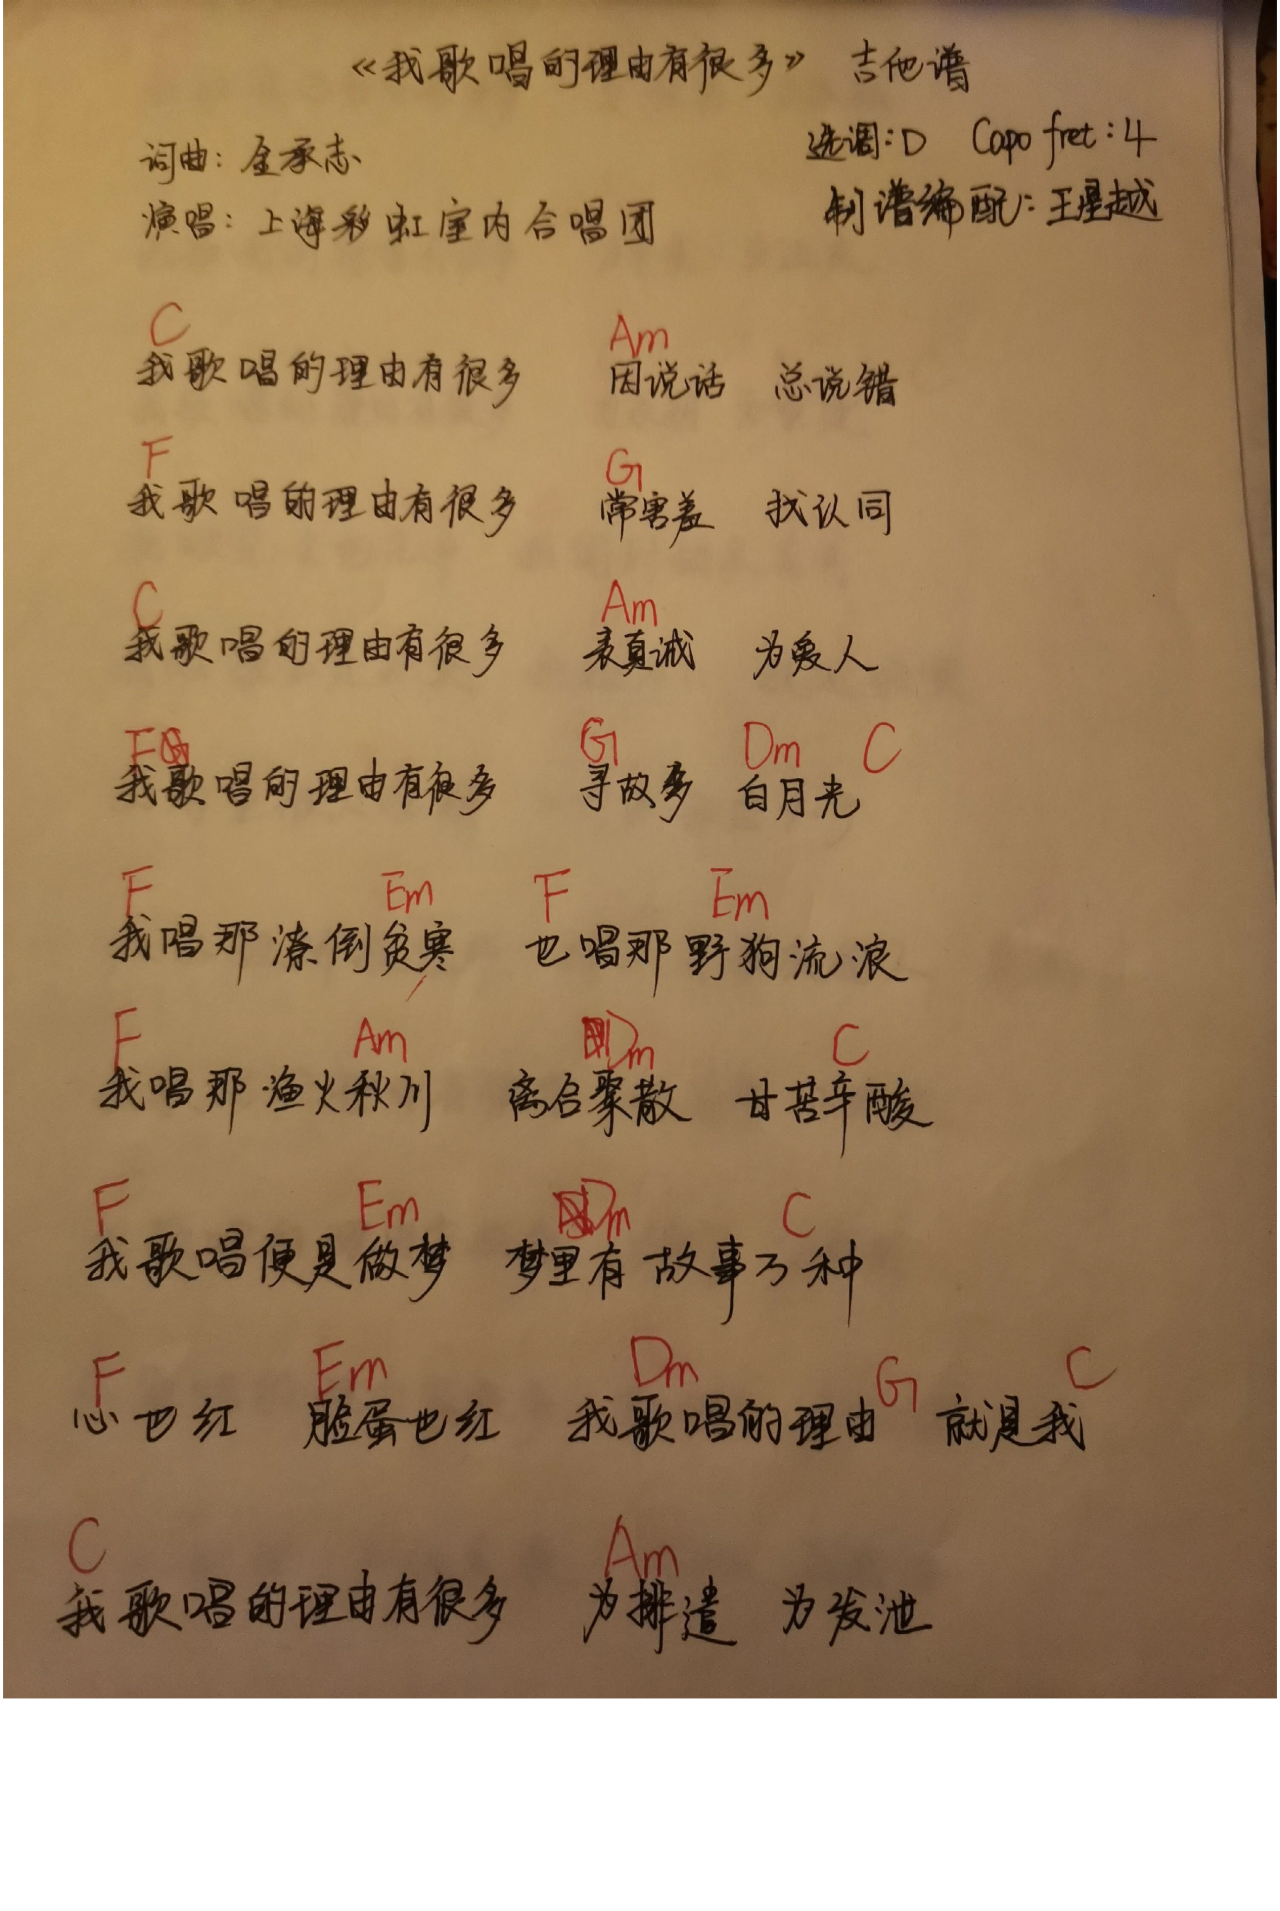 《我歌唱的理由有很多》 吉他谱
选调:D Capo fret:4
词曲:金承志
制谱编配:王星越
演唱:上海彩虹室内合唱团
C Am
我歌唱的理由有很多 因说话 总说错
F G
我歌唱的理由有很多 常害羞 找认同
C Am
我歌唱的理由有很多 表真诚 为爱人
F G Dm C
我歌唱的理由有很多 寻故乡 白月光
F Em F Em
我唱那潦倒贫寒 也唱那野狗流浪
F Am Dm C
我唱那渔火秋川 离合聚散 甘苦辛酸
F Em Dm C
我歌唱便是做梦 梦里有故事万种
F Em Dm G C
心也红 脸蛋也红 我歌唱的理由 就是我
C Am
我歌唱的理由有很多 为排遣 为发泄